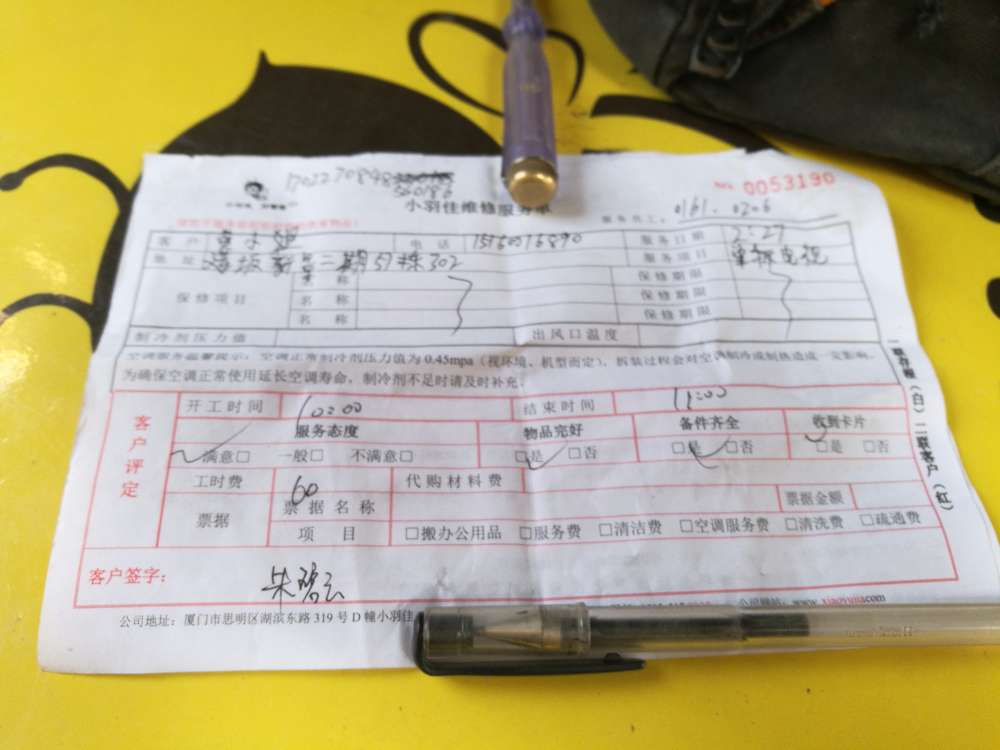 17022708498
560186
NO. 0053190
小羽佳维修服务单
服务员工: 0161. 0206
客户 电话 15160016890 服务日期 2:27
地址 二期51栋302 服务项目 电视
保修项目 名称 保修期限
名称 保修期限
名称 保修期限
制冷剂压力值 出风口温度
空调服务温馨提示:空调正常制冷剂压力值为0.45mpa(视环境、机型而定),拆装过程会对空调制冷或制热造成一定影响。
为确保空调正常使用延长空调寿命,制冷剂不足时请及时补充。
一联存根(白)二联客户(红)
客户评定
开工时间 10:00 结束时间 11:00
服务态度 物品完好 备件齐全 收到卡片
满意□ 一般□ 不满意□ □是 □否 □是 □否 □是 □否
工时费 60 代购材料费
票据 票据名称 票据金额
项目 □搬办公用品 □服务费 □清洁费 □空调服务费 □清洗费 □疏通费
客户签字:
公司地址:厦门市思明区湖滨东路319号D幢小羽佳